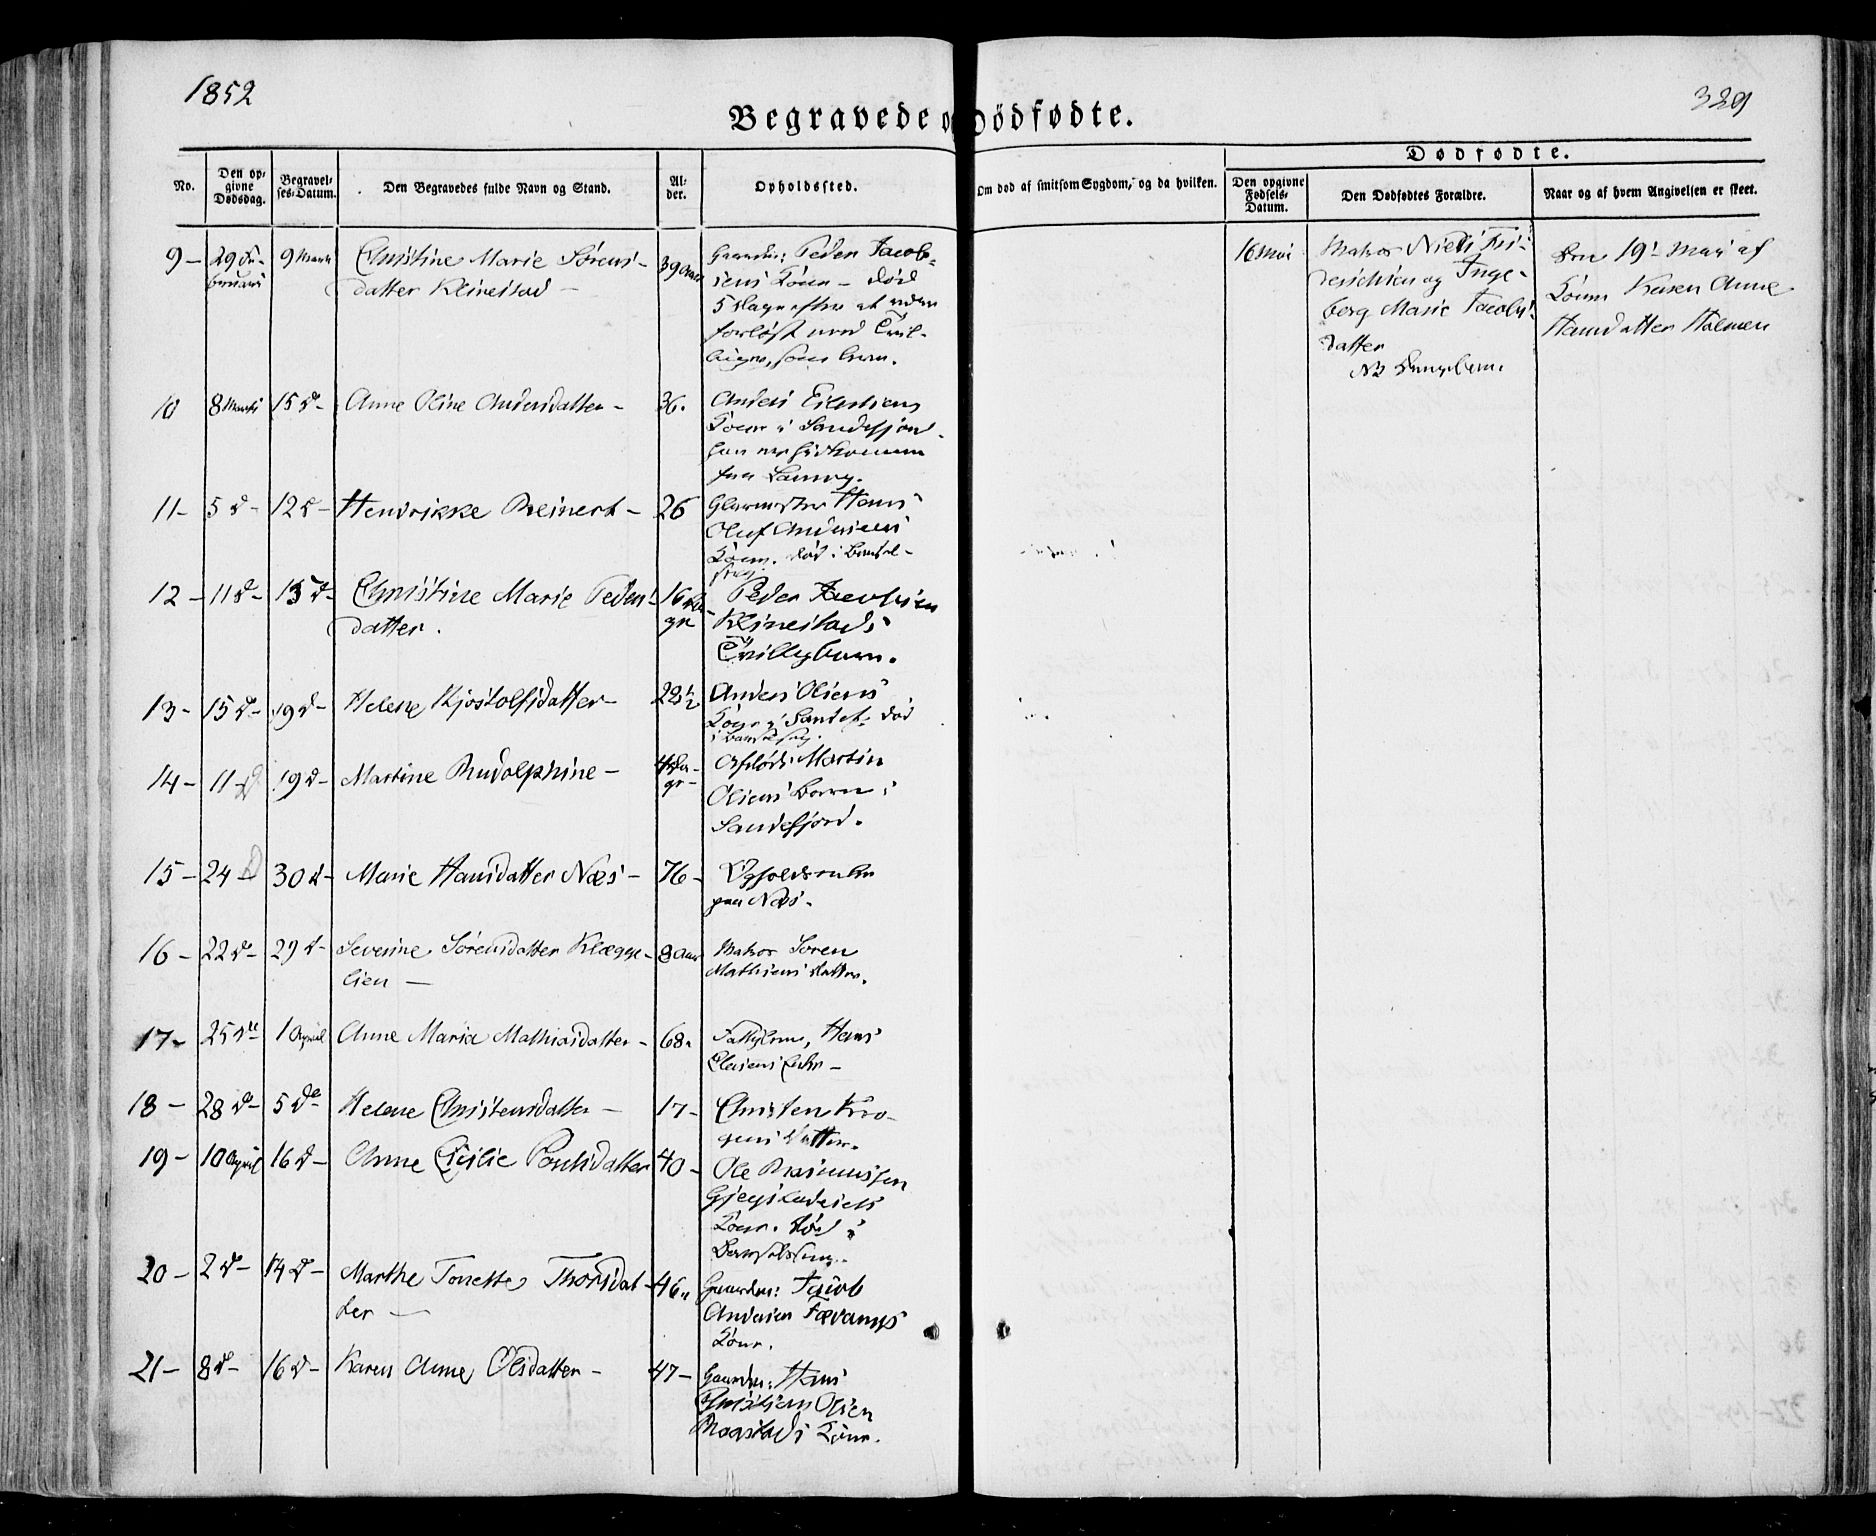 1852
329
Begravede og Dødfødte.
Dødfødte.
No.
Den op-
givne
Dødsdag.
Begravel-
ses-Datum.
Den Begravedes fulde Navn og Stand.
Al-
der.
Opholdssted.
Om død af smitsom Sygdom, og da hvilken.
Den opgivne
Fødsels-
Datum.
Den Dødfødtes Forældre.
Naar og af hvem Angivelsen er skeet.
9 - 29 Fe-
bruari
9 Marti
Christine Marie Sørens-
datter Klinestad -
39 Aar
Gaardbr: Peder Jacob-
sens Kone - død
5 Dage efter at være
forløst med Tvil-
linger,
16 Mai
Matros Niels Fri-
derichsen og Inge-
berg Marie Jacobs-
datter
NB
den 19 Mai af
Karen Anne
Hansdatter Holmen
10 8 Marti 15 d - Anne Oline Andersdatter - 36.
Anders
Kone i Sandefjord
fra
11 - 5 d - 12 d - Henrikke Reinert - 26
Glarmester Hans
Oluf Andersens
Kone. død i Barsel-
seng
12 - 11 d - 15 d - Christine Marie Peders-
datter.
16 Da-
ge
Peder Jacobsen
Klinestads
Tvillingbarn.
13 - 15 d - 19 d - Helene Kjøstolfsdatter - 28 1/2
Anders Olsens
Kone i Sandef: død
i Barselseng
14 - 11 d 19 d - Martine Rudolphine -
Da-
ge -
Afdøde Martin
Olsens Barn i
Sandefjord.
15 - 24 d 30 d - Marie Hansdatter Næs - 76 -
paa Næs -
16 - 22 d - 29 d - Severine Sørensdatter Klægge-
lien -
8 Aar
Matros Søren
Mathisens Datter.
17 - 25 de 1 April Anne Maria Mathiasdatter - 68 -
Hans
Enke -
18 - 28 d - 5 de Helene Christensdatter - 17 -
Christen
Datter.
19 - 10 April 16 d - Anne Cicilie Poulsdatter 40 -
Ole Rasmussen
Kone. død i
Barselseng.
20 - 2 d - 14 d - Marthe Tonette Thorsdat-
ter -
46 -
Gaardbr: Jacob
Andersen Fævangs
Kone.
21 - 8 d - 16 d - Karen Anne Olsdatter - 47 -
Gaardbr: Hans
Christian Olsen
Raastads Kone.